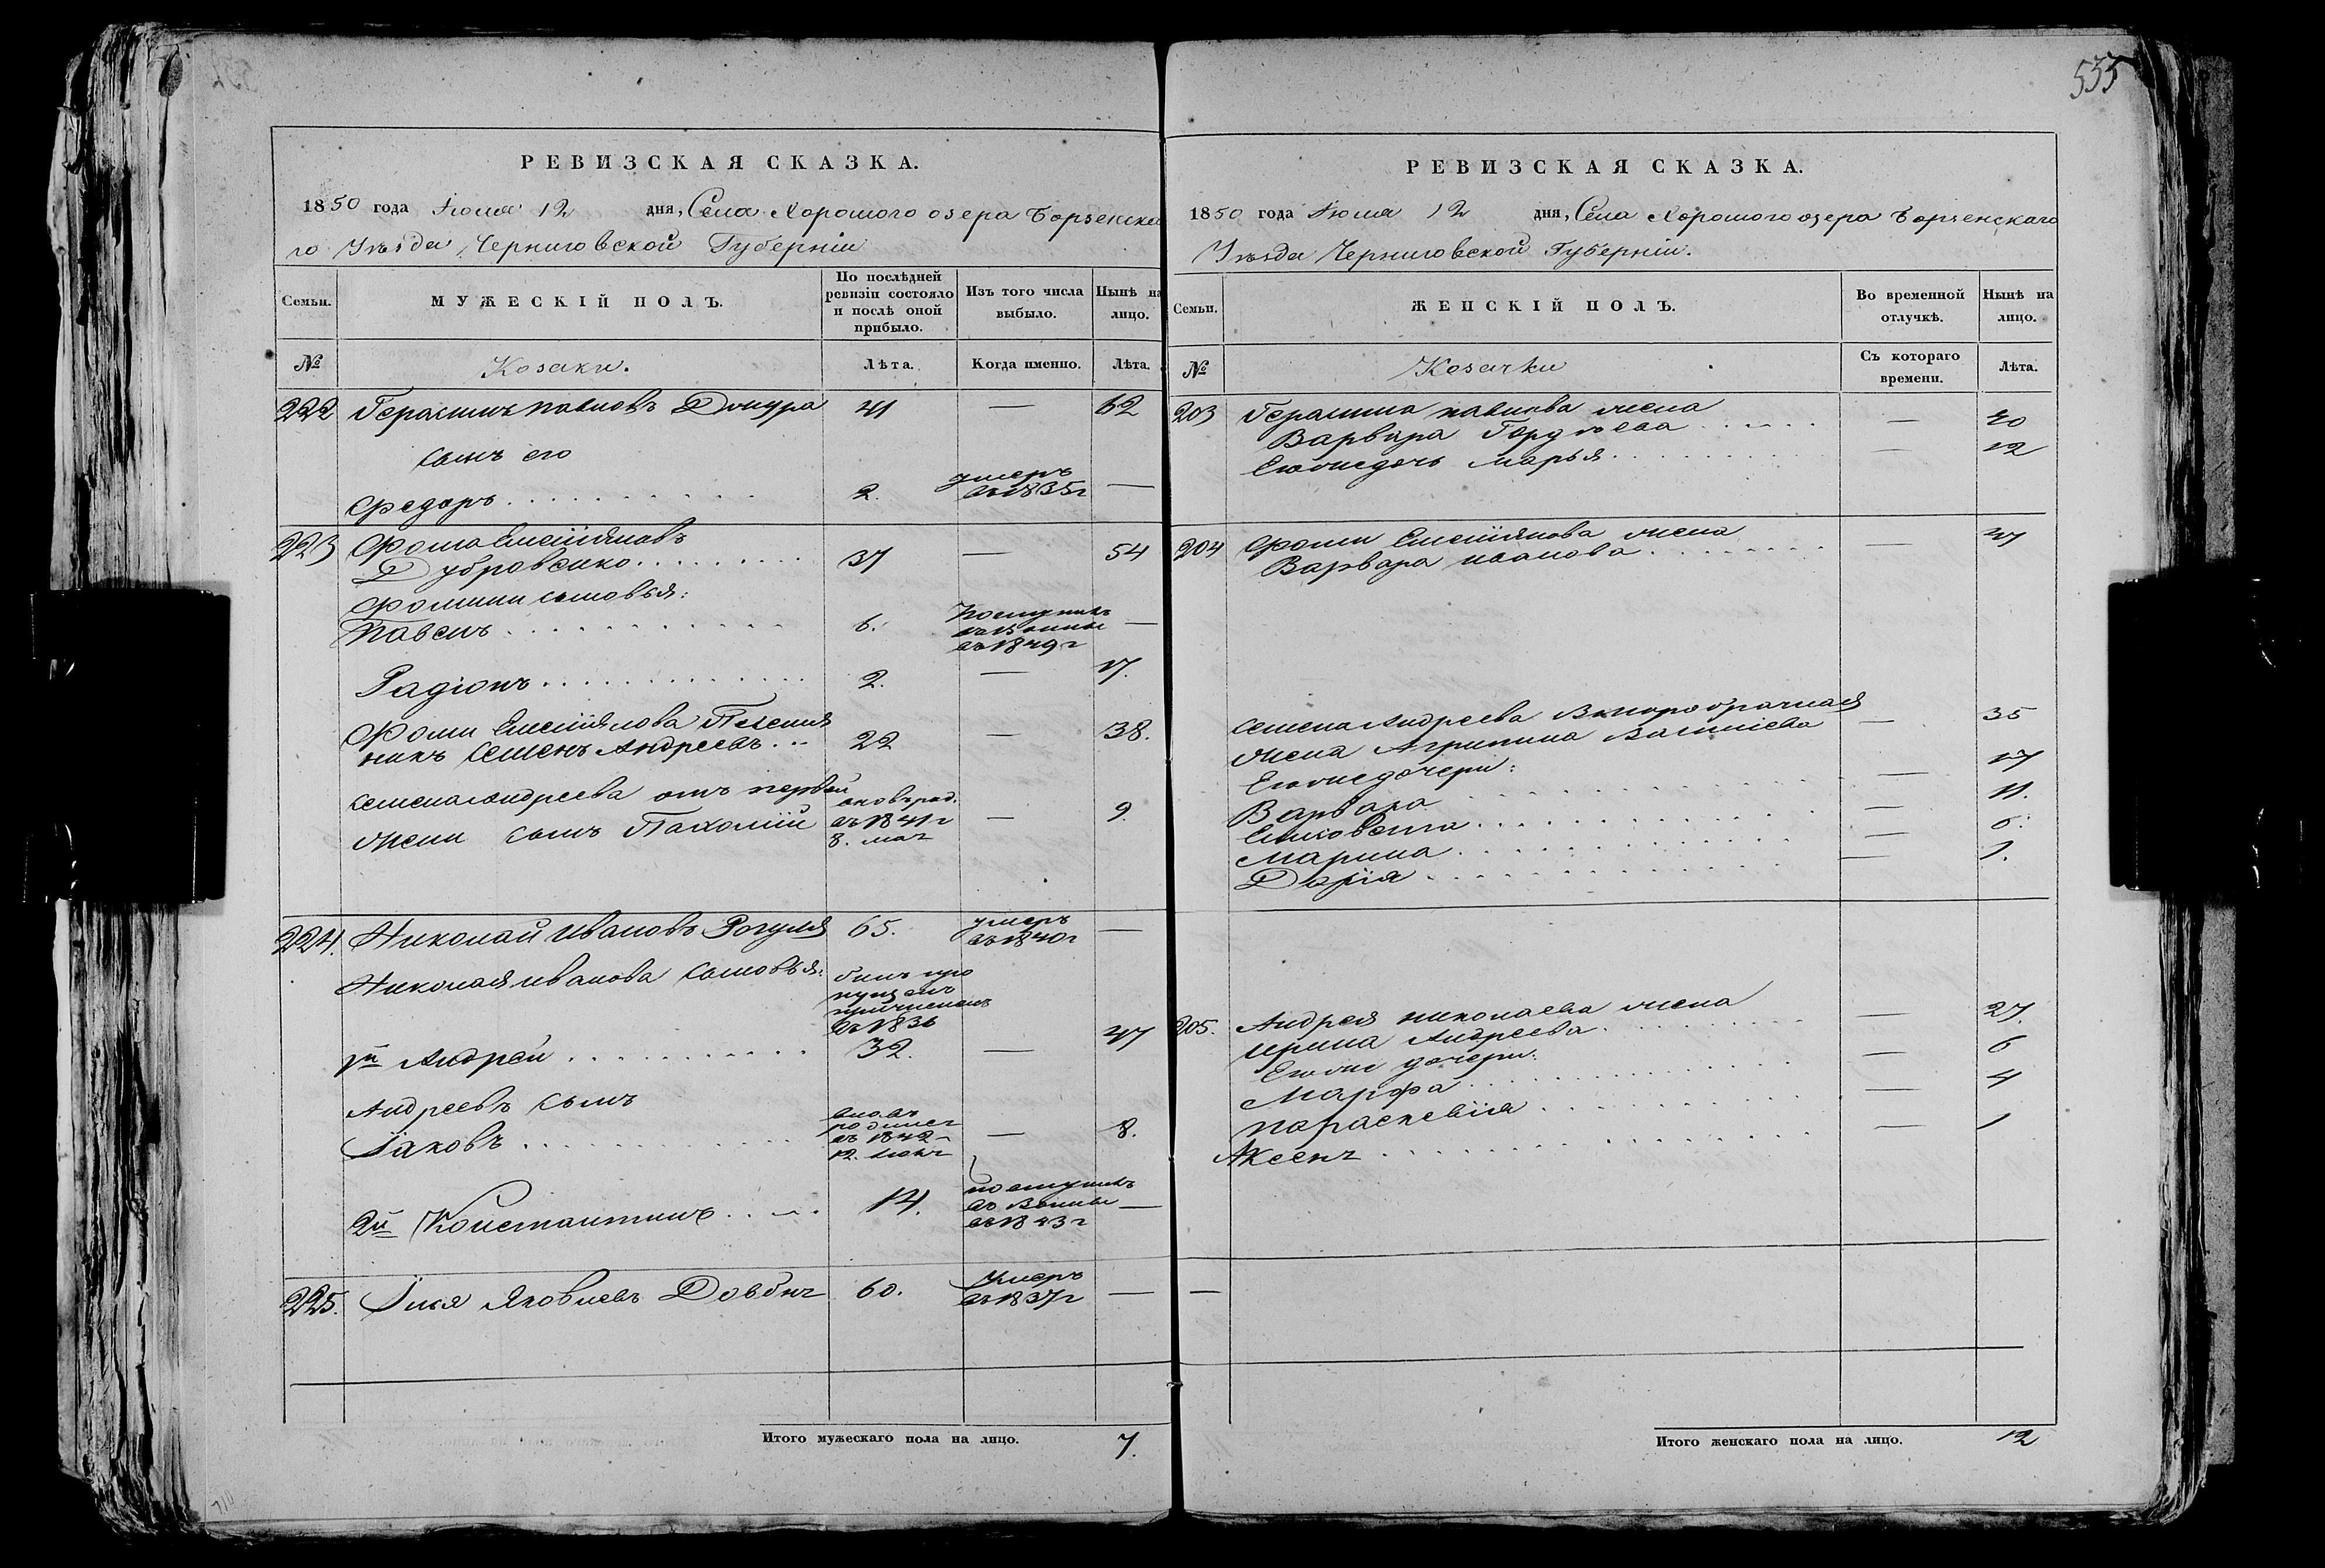 РЕВИЗСКАЯ СКАЗКА.
1850 года Іюля 12 дня, Села Хорошого озера Борзенска
го Уѣзда Черниговской Губерніи
Семьи. МУЖЕСКІЙ ПОЛЪ. По послѣдней ревизіи состояло и послѣ оной прибыло. Изъ того числа выбыло. Нынѣ на лицо.
№ Козаки. Лѣта. Когда именно. Лѣта.
222 Герасимъ павловъ 41 — 62
сынъ его
Федоръ 2. умеръ въ 1835г —
223 Фома Емеліяновъ
Дубровенко 37 — 54
Фомини сыновья:
Павелъ 6. Поступилъ въ Воины въ 1849г —
Радіонъ 2. — 17.
Фоми Емеліянова Племян
никъ Семенъ Андреевъ 22 — 38.
Семена Андреева отъ первой
жени сынъ Пахомій вновь род. въ 1841г 8. мая — 9
224. Николай Ивановъ Рогуля 65. умеръ въ 1840г —
Николая Иванова сыновья:
1й Андрей былъ пропущенъ причисленъ въ 1836 32. — 47
Андреевъ сынъ
Іаковъ вновь родился въ 1842 — 8.
2й Константинъ 14. поступилъ въ Воины въ 1843г —
225. Илья Яковлевъ 60. Умеръ въ 1837г —
Итого мужескаго пола на лицо. 7.
535
РЕВИЗСКАЯ СКАЗКА.
1850 года Іюля 12 дня, Села Хорошого озера Борзенскаго
Уѣзда Черниговской Губерніи.
Семьи. ЖЕНСКІЙ ПОЛЪ. Во временной отлучкѣ. Нынѣ на лицо.
№ Козачки Съ котораго времени. Лѣта.
203 Герасима павлова жена
Варвара Гордѣева — 40
Еѣ же дочь Марья — 12
204 Фоми Емеліянова жена
Варвара иванова — 47
Семена Андреева Второбрачная
жена Агрипина Василіева — 35
Еѣ же дочери:
Варвара — 17
— 11.
Марина — 6.
Дарія — 1.
205. Андрея николаева жена
Ирина Андреева — 27.
Еѣ же дочери:
Марфа — 6
параскевія — 4
— 1
—
Итого женскаго пола на лицо. 12